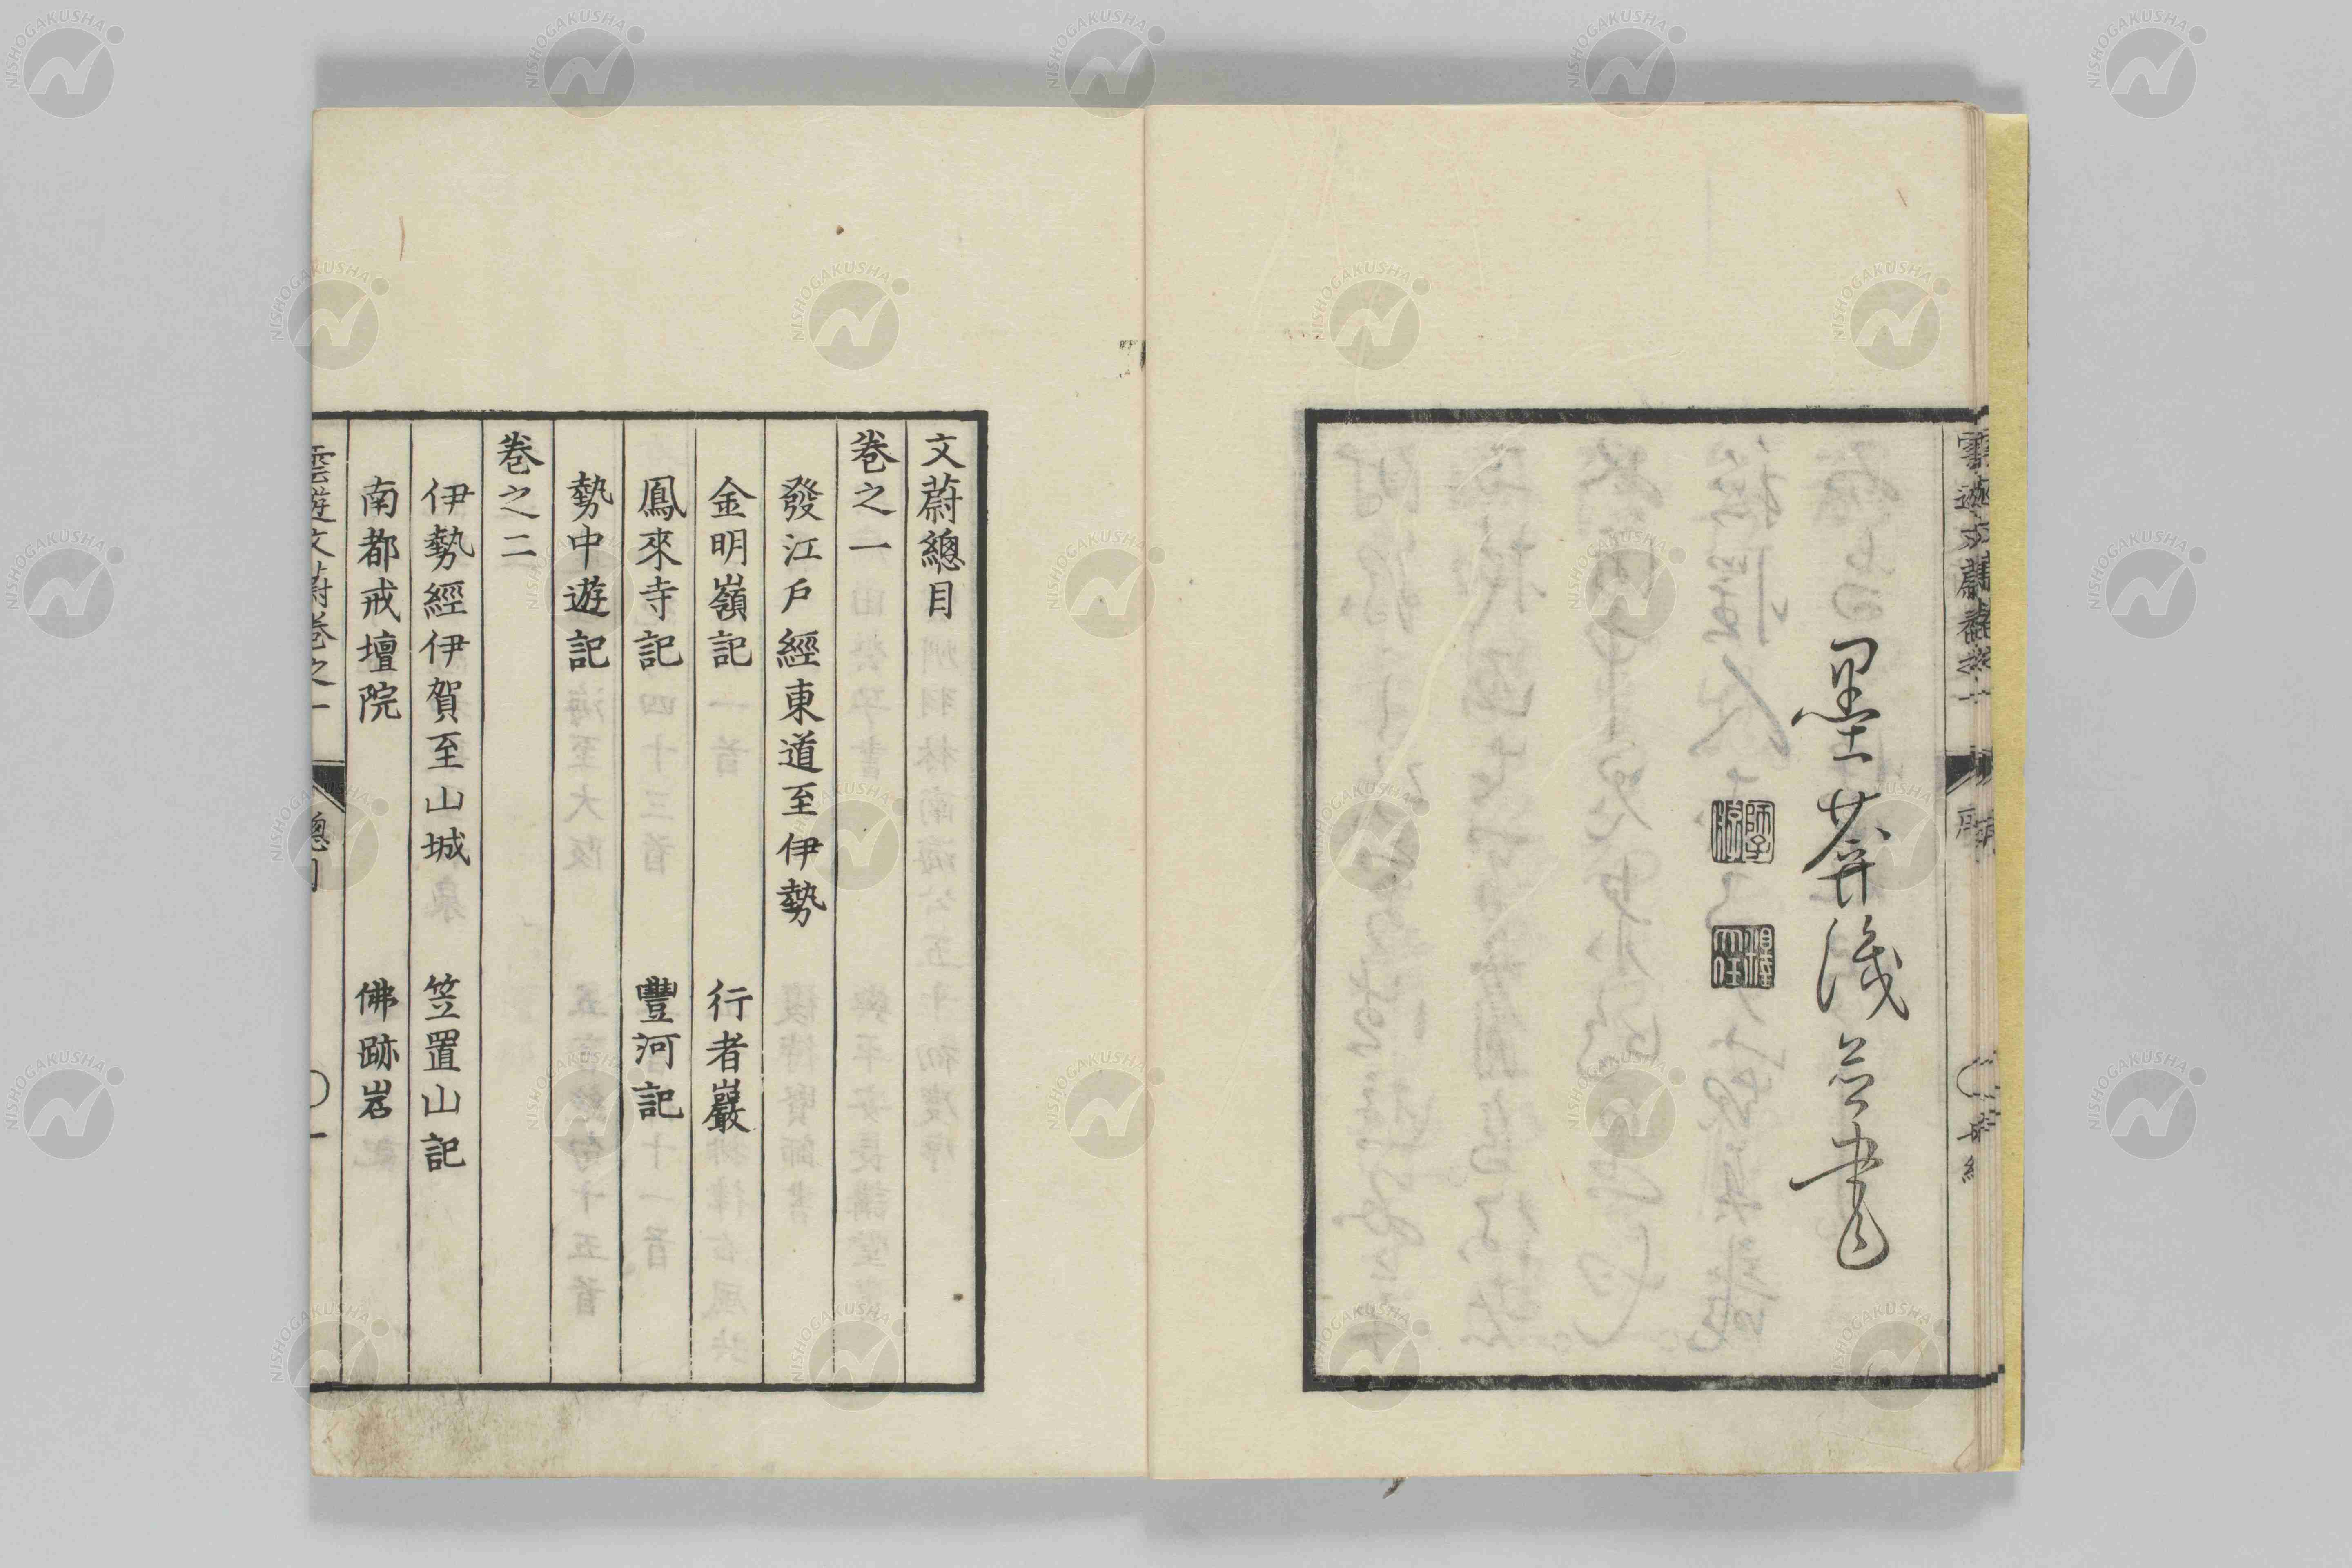 墨
書
文蔚總目
卷之一
發江戶經東道至伊勢
金明嶺記 行者巖
鳳來寺記 豐河記
勢中遊記
卷之二
伊勢經伊賀至山城 笠置山記
南都戒壇院 佛跡岩
雲遊文蔚卷之一 總目 一
NISHOGAKUSHA